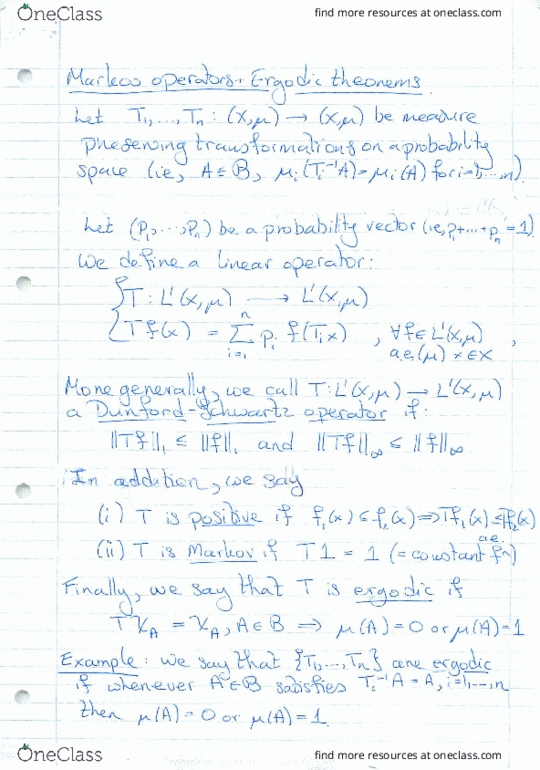 OneClass
find more resources at oneclass.com
Markov operators + Ergodic theorems.
Let T₁,...,Tₙ : (X,μ) → (X,μ) be measure
preserving transformations on a probability
space (ie, A∈B, μᵢ(Tᵢ⁻¹A)=μᵢ(A) for i=1,...,n).
Let (P₁,...,Pₙ) be a probability vector (ie, p₁+...+pₙ=1)
We define a linear operator:
{ T : L¹(X,μ) ⟶ L¹(X,μ)
Tf(x) = Σᵢ₌₁ⁿ pᵢ f(Tᵢx) , ∀f∈L¹(X,μ) ,
a.e.(μ) x∈X
More generally, we call T: L¹(X,μ) → L¹(X,μ)
a Dunford-Schwartz operator if:
‖Tf‖₁ ≤ ‖f‖₁ and ‖Tf‖∞ ≤ ‖f‖∞
In addition, we say
(i) T is positive if f₁(x) ≤ f₂(x) ⇒ Tf₁(x) ≤ Tf₂(x)
a.e.
(ii) T is Markov if T1 = 1 (= constant fⁿ)
Finally, we say that T is ergodic if
Tχ_A = χ_A, A∈B ⇒ μ(A)=0 or μ(A)=1
Example: we say that {T₁,...,Tₙ} are ergodic
if whenever A∈B satisfies Tᵢ⁻¹A = A, i=1,...,n
then μ(A)=0 or μ(A)=1.
OneClass
find more resources at oneclass.com